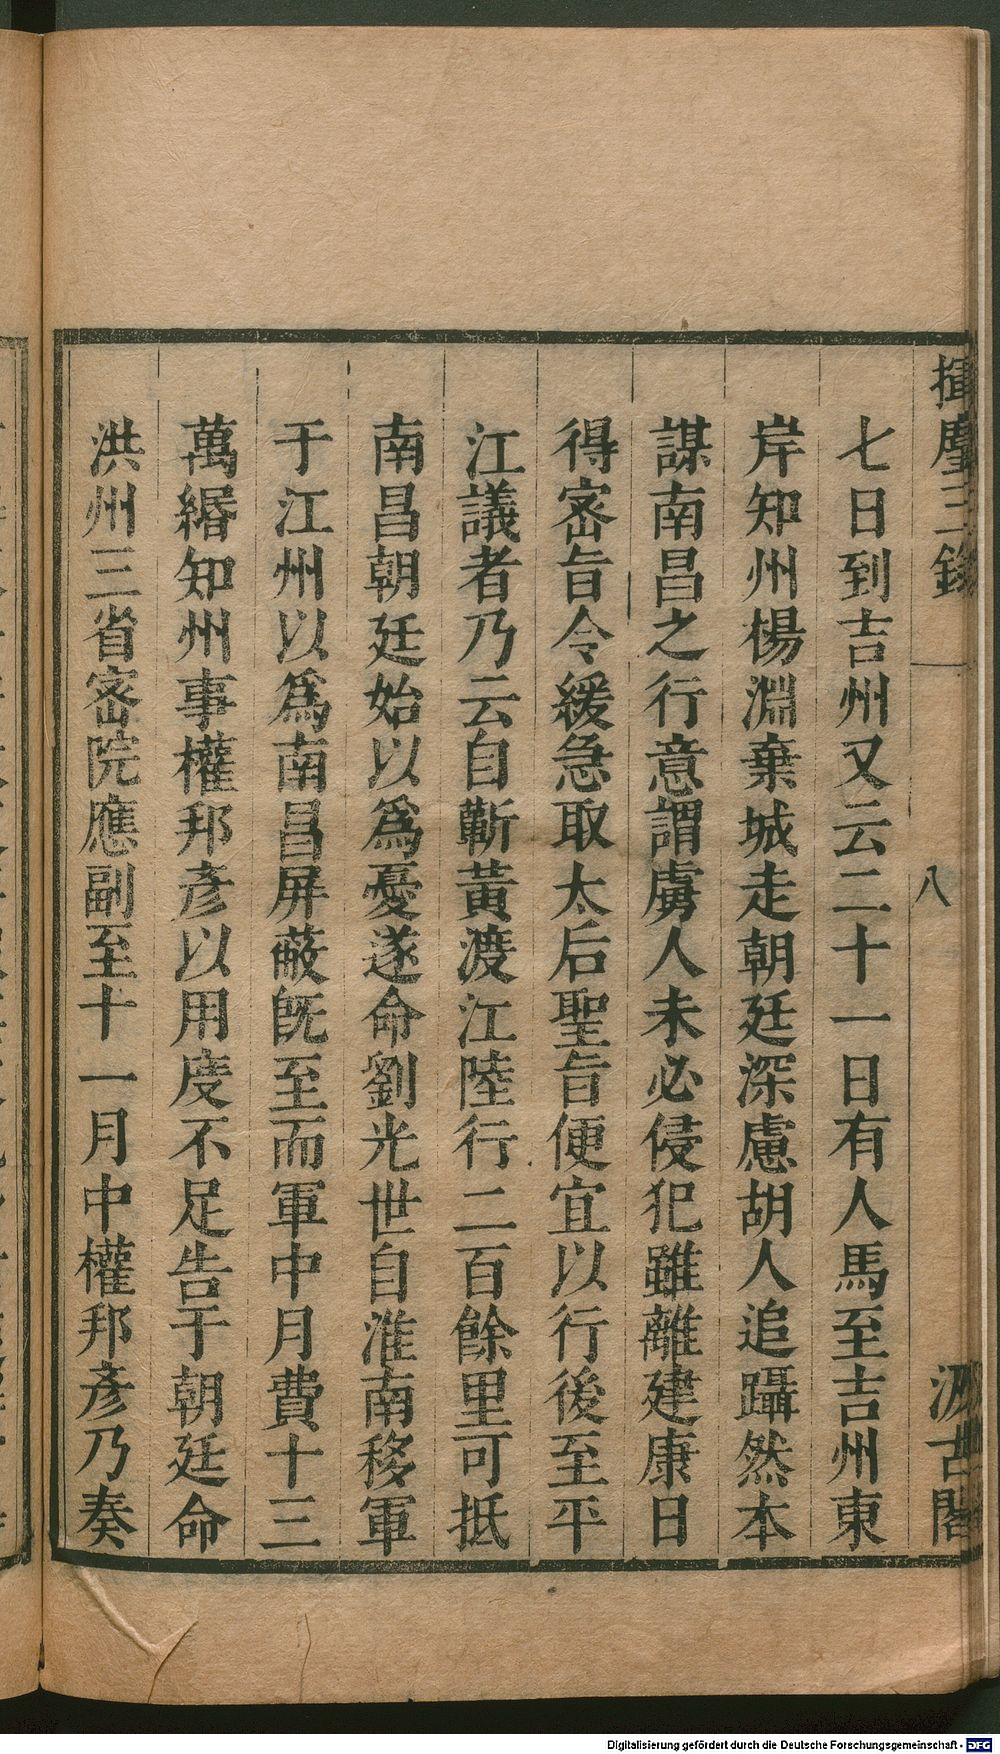 揮麈三錄
八
汲古閣
七日到吉州又云二十一日有人馬至吉州東
岸知州楊淵棄城走朝廷深慮胡人追躡然本
謀南昌之行意謂虜人未必侵犯雖離建康日
得密旨令緩急取太后聖旨便宜以行後至平
江議者乃云自蘄黃渡江陸行二百餘里可抵
南昌朝廷始以爲憂遂命劉光世自淮南移軍
于江州以爲南昌屏蔽旣至而軍中月費十三
萬緡知州事權邦彥以用度不足告于朝廷命
洪州三省密院應副至十一月中權邦彥乃奏
Digitalisierung gefördert durch die Deutsche Forschungsgemeinschaft - DFG